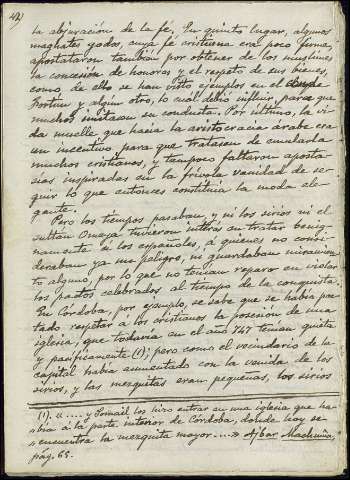 la abjuración de la fé. En quinto lugar, algunos
magnates godos, cuya fé cristiana era poco firme,
apostataron tambien por obtener de los muslimes
la concesión de honores y el respeto de sus bienes,
como, de ello se han visto ejemplos en el
Fortun y algun otro, lo cual debió influir para que
muchos imitasen su conducta. Por último, la vi-
da muelle que hacia la aristocracia arabe era
un incentivo para que tratasen de emularla
muchos cristianos, y tampoco faltaron aposta-
sias inspiradas en la frivola vanidad de se-
guir lo que entonces constituia la moda ele-
gante.
Pero los tiempos pasaban, y ni los sirios ni el
sultán Omeya tuvieron interes en tratar benig-
namente á los españoles, á quienes no consi-
deraban ya un peligro, ni guardaban miramien-
to alguno, por lo que no tenian reparo en violar
los pactos celebrados al tiempo de la conquista.
En Córdoba, por ejemplo, se sabe que se habia pac-
tado respetar á los cristianos la posesion de una
iglesia, que todavia en el año 747 tenian quieta
y pacificamente (1); pero como el vecindario de la
capital habia aumentado con la venida de los
sirios, y las mezquitas eran pequeñas, los sirios
(1). « .... y Somail los hizo entrar en una iglesia que ha-
bia á la parte interior de Córdoba, donde hoy se
encuentra la mezquita mayor....» Ajbar Machmuâ,
pág. 65.